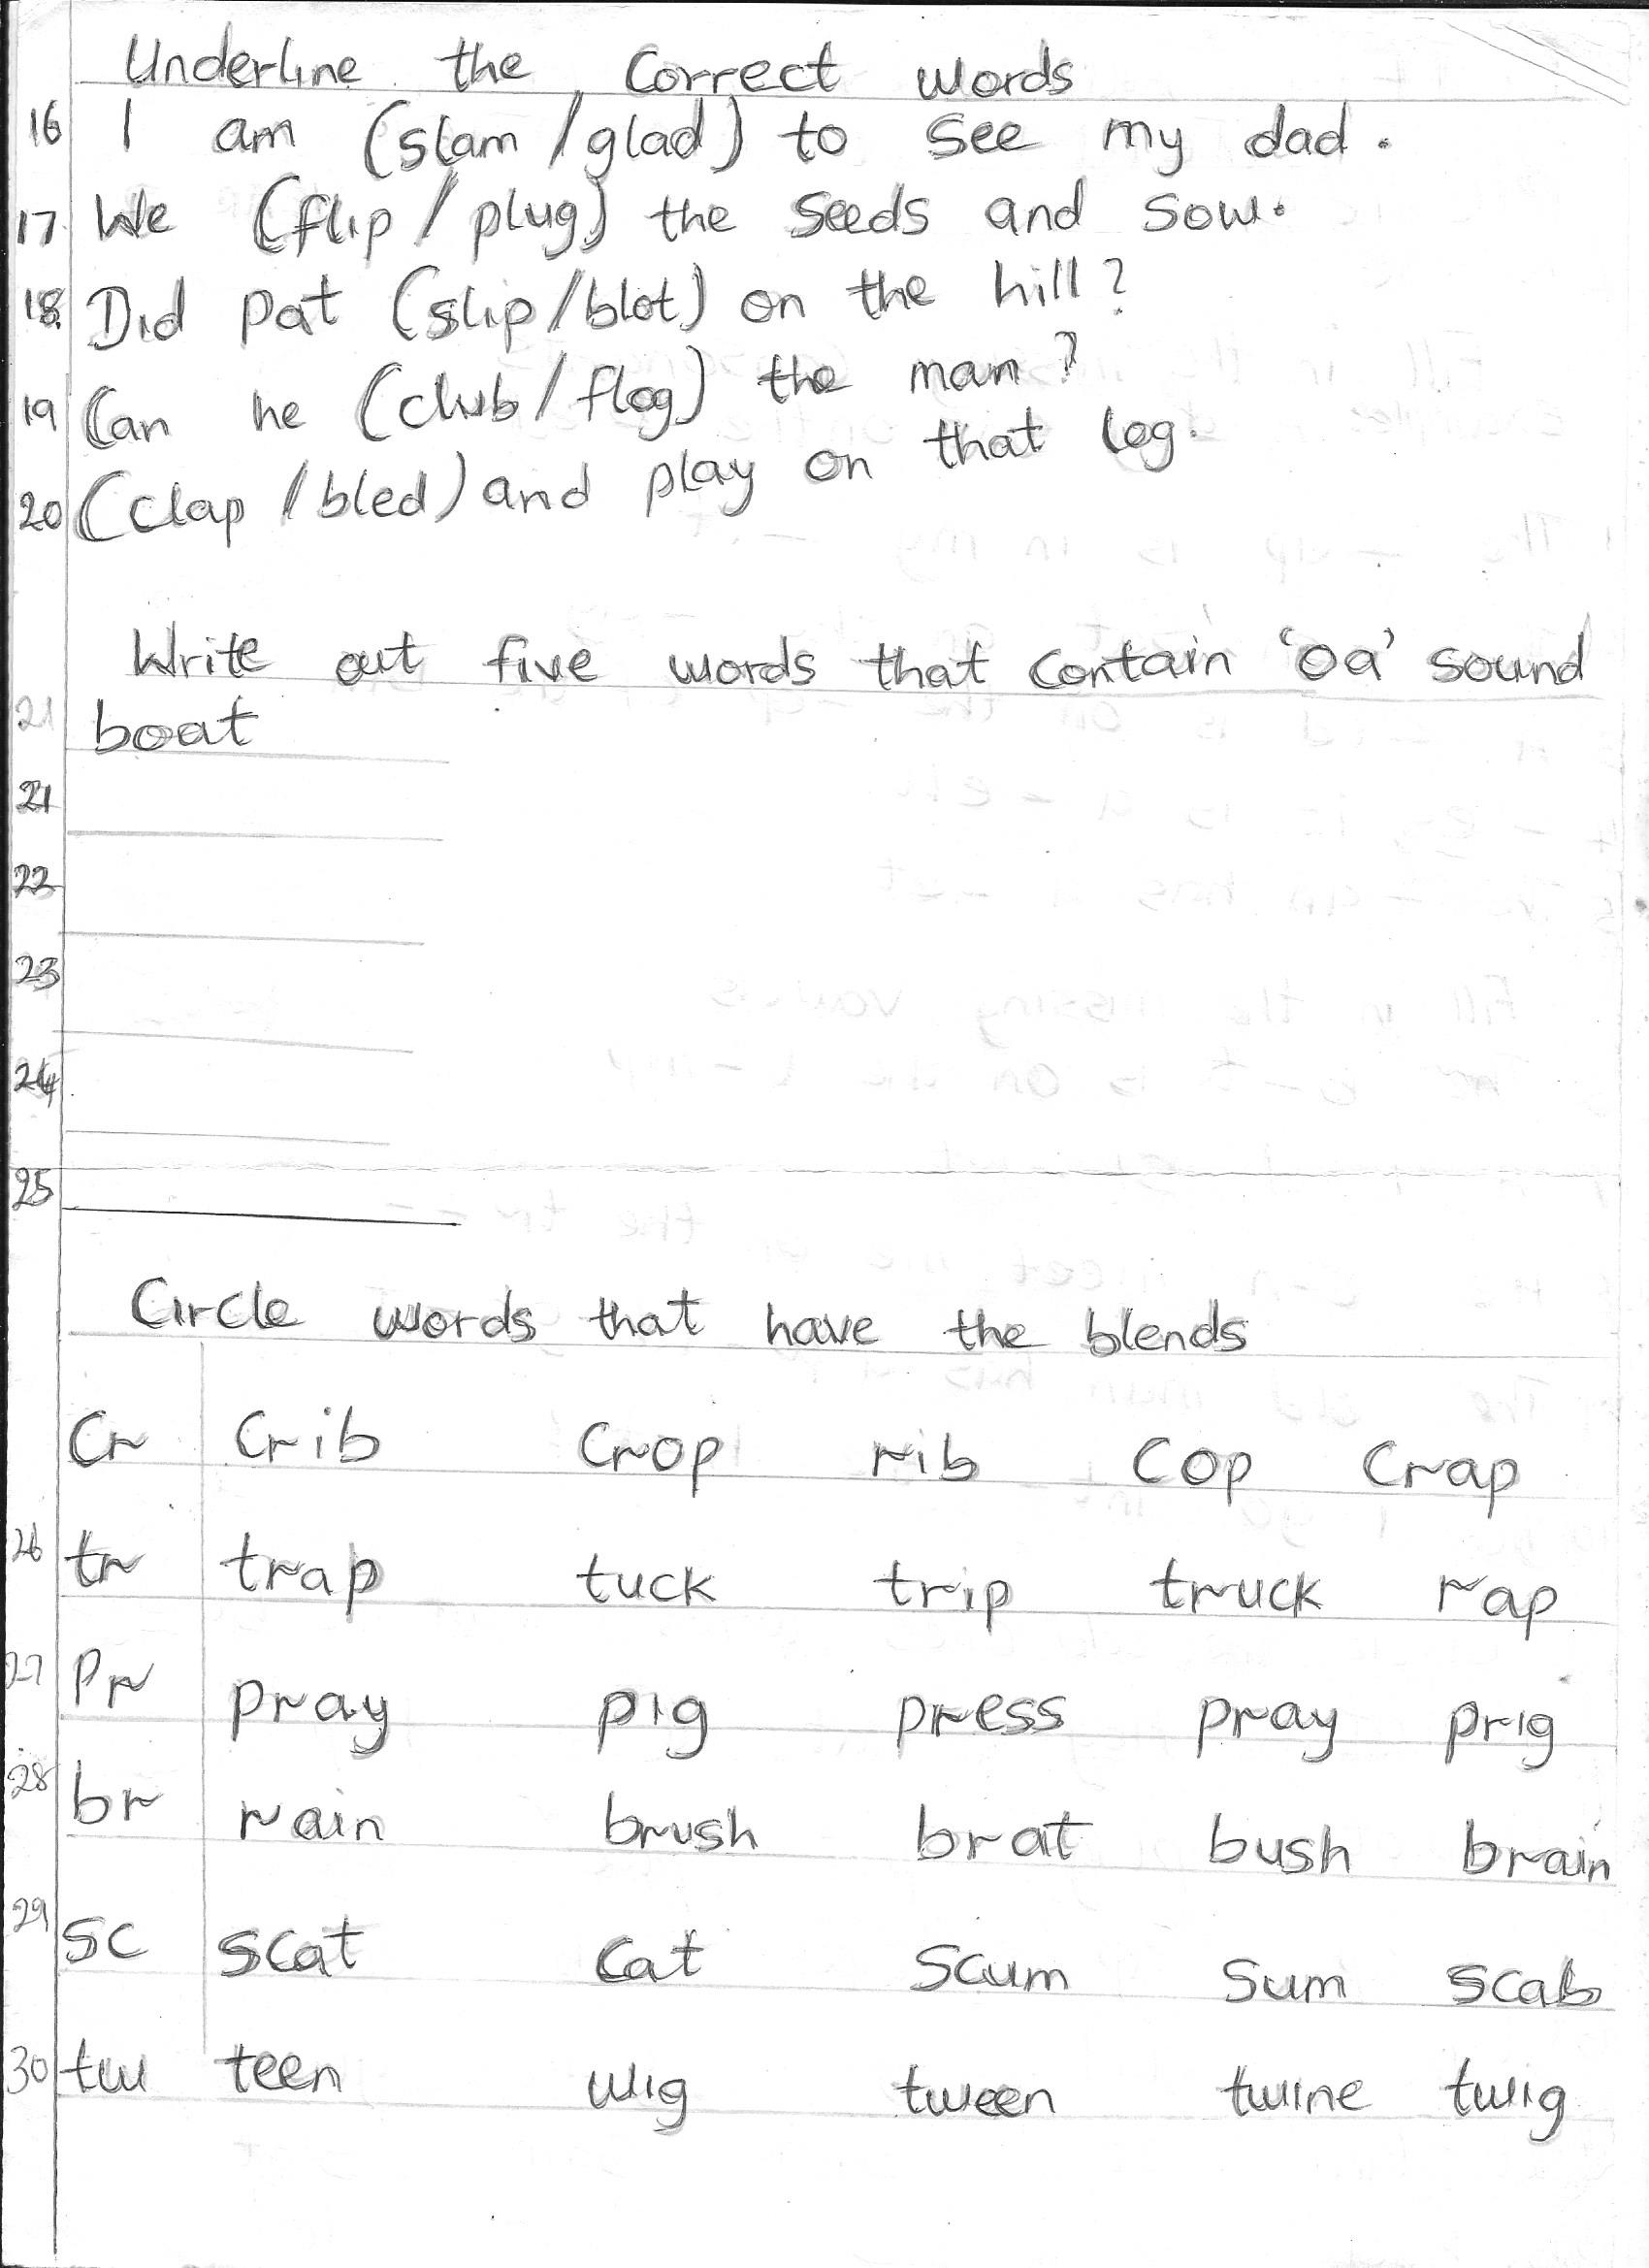 Underline the correct words
16 I am (slam / glad) to see my dad.
17 We (flip / plug) the seeds and sow.
18 Did Pat (slip / blot) on the hill?
19 Can he (club / flog) the man?
20 (clap / bled) and play on that log.
Write out five words that contain 'oa' sound
21 boat
21
22
23
24
25
Circle words that have the blends
Cr Crib Crop rib Cop Crap
26 tr trap tuck trip truck rap
27 Pr pray pig press pray prig
28 br rain brush brat bush brain
29 sc scat cat scum sum scab
30 tw teen wig tween twine twig